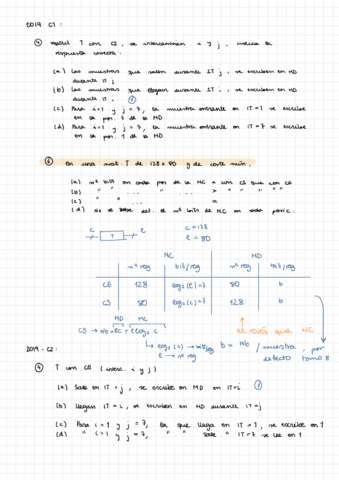 2019 C1:
④ matriz T con CS, se intercambian i y j, indica la
respuesta correcta.
(a) Las muestras que salen durante IT j, se escriben en MD
durante IT i
(b) Las muestras que llegan durante IT i, se escriben en MD
durante IT i
(c) Para i=1 y j=7, la muestra entrante en IT=1 se escribe
en la pos. 7 de la MD
(d) Para i=1 y j=7, la muestra entrante en IT=7 se escribe
en la pos. 1 de la MD
⑧ En una mat. T de 128x80 y de coste mín.
(a) nº bits en cada pos de la MC < con CS que con CE
(b) " " " ... " >
(c) " " ... =
(d) No se sabe det. el nº bits de MC en cada posic.
c T e
c=128
e=80
MC MD
nº reg bit/reg nº reg bit/reg
CE 128 log₂(e)=7 80 b
CS 80 log₂(c)=7 128 b
MD MC
el revés que MC
log₂(c) → bit/reg
e → nº reg
b = Nb /muestra, por
defecto tomo 8
2019-C2:
④ T con CE (interc. i y j)
(a) Sale en IT=j, se escribe en MD en IT=i
(b) Llegan IT=i, se escriben en MD durante IT=j
(c) Para i=1 y j=7, la que llega en IT=1, se escribe en 1
(d) " i=1 y j=7, " " sale " IT=7 se lee en 1